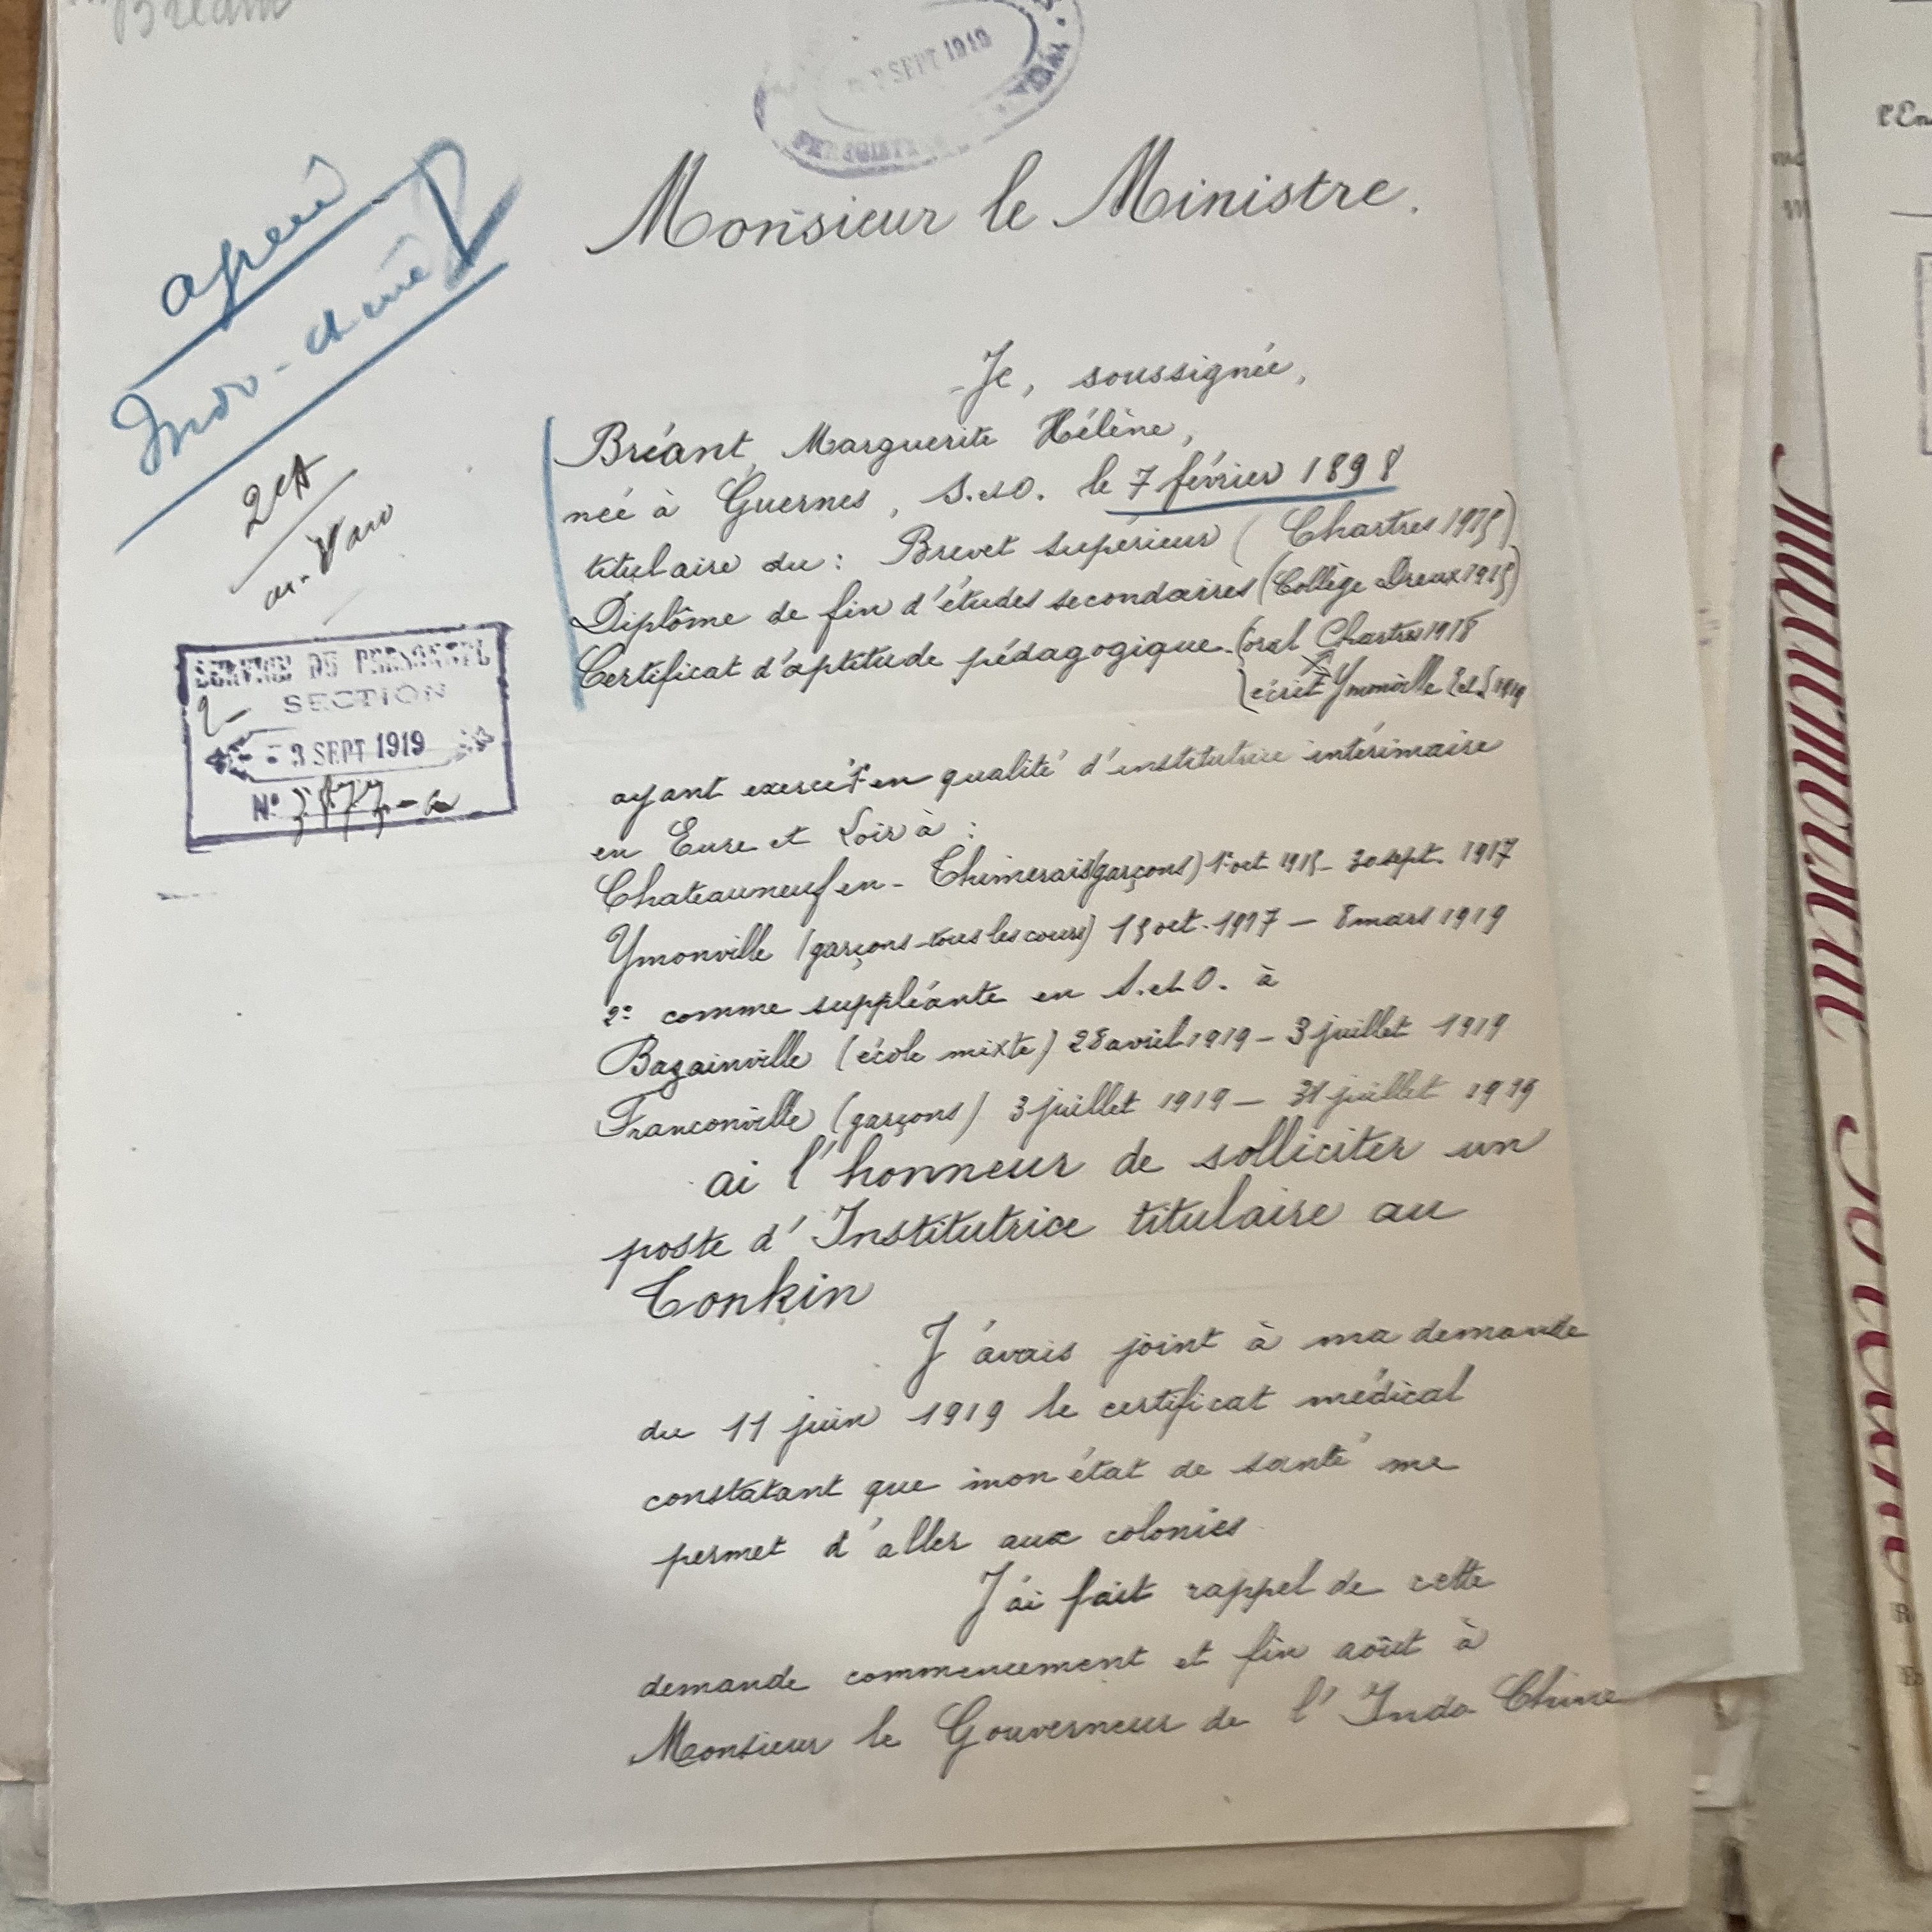 Bréant
SEPT 1919
Monsieur le Ministre.
Indo-
Je, soussignée,
Bréant, Marguerite Hélène,
née à Guernes, S. et O. le 7 février 1898
titulaire du : Brevet supérieur (Chartres 1915)
Diplôme de fin d'études secondaires (Collège Dreux 1915)
Certificat d'aptitude pédagogique. (oral Chartres 1918
écrit Ymonville 1919
SERVICE DU PERSONNEL
2
SECTION
- 3 SEPT 1919
N°
ayant exercé 1° en qualité d'institutrice intérimaire
en Eure et Loir à :
Chateauneuf en - Thimerais (garçons) 1er oct 1915 - 30 sept. 1917
Ymonville (garçons - tous les cours) 15 oct. 1917 - 8 mars 1919
2° comme suppléante en S. et O. à
Bazainville (école mixte) 28 avril 1919 - 3 juillet 1919
Franconville (garçons) 3 juillet 1919 - 31 juillet 1919
ai l'honneur de solliciter un
poste d'Institutrice titulaire au
Tonkin
J'avais joint à ma demande
du 11 juin 1919 le certificat médical
constatant que mon état de santé me
permet d'aller aux colonies
J'ai fait rappel de cette
demande commencement et fin août à
Monsieur le Gouverneur de l'Indo Chine